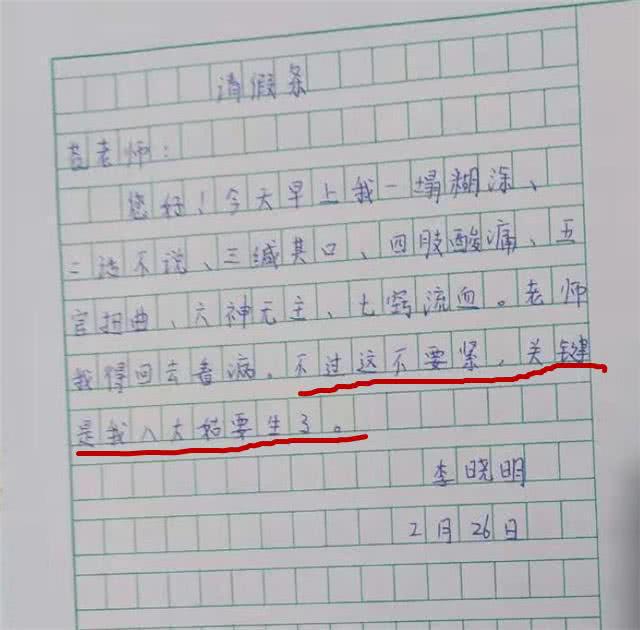 请假条
老师:
您好!今天早上我一塌糊涂、
二话不说、三缄其口、四肢酸痛、五
官扭曲、六神无主、七窍流血。老师
我得回去看病。不过这不要紧,关键
是我八大姑要生了。
李晓明
2月26日